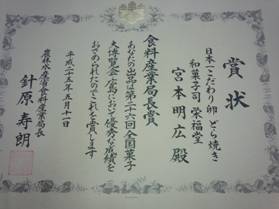 賞状
日本一こだわり卵 どら焼き
和菓子司 栄福堂
宮本明広 殿
食料産業局長賞
あなたの出品は第二十六回全国菓子
大博覧会・広島において優秀な成績を
おさめられたのでこれを賞します
平成二十五年五月十一日
農林水産省食料産業局長
針原寿朗